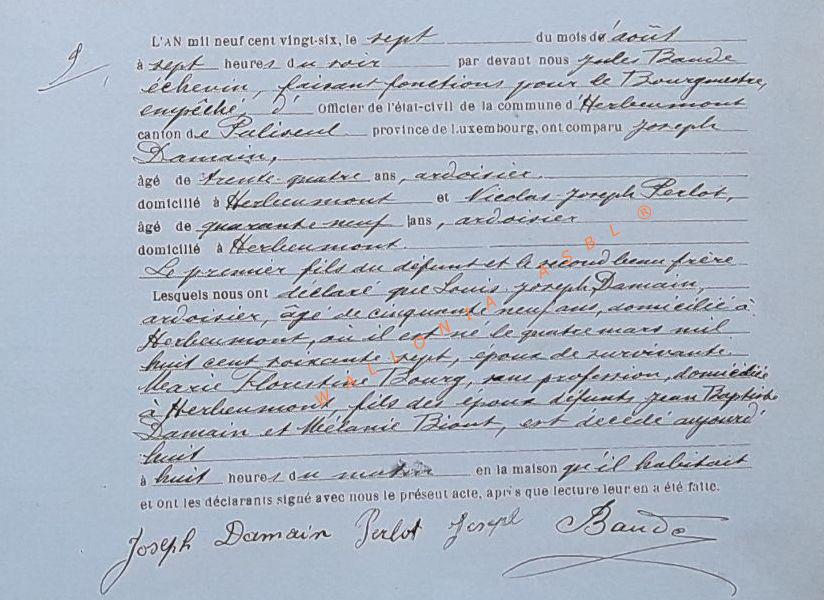 9,
L'AN mil neuf cent vingt-six, le sept du mois de août
à sept heures du soir par devant nous Jules Baude
échevin, faisant fonctions pour le Bourgmestre,
empêché, d' Officier de l'état-civil de la commune d'Herbeumont
canton de Paliseul province de Luxembourg, ont comparu Joseph
Damain,
âgé de trente-quatre ans, ardoisier.
domicilié à Herbeumont et Nicolas-Joseph Perlot,
âgé de quarante-neuf ans, ardoisier
domicilié à Herbeumont.
Le premier fils du défunt et le second beau frère
Lesquels nous ont déclaré que Louis-Joseph Damain,
ardoisier, âgé de cinquante neuf ans, domicilié à
Herbeumont, où il est né le quatre mars mil
huit cent soixante-sept, époux de survivante
Marie Florentine Bourg, sans profession, domiciliée
à Herbeumont, fils des époux défunts, Jean Baptiste
Damain et Mélanie Biout, est décédé aujourd'
huit
à huit heures du matin en la maison qu'il habitait
et ont les déclarants signé avec nous le présent acte, après que lecture leur en a été faite.
Joseph Damain Perlot Joseph Baude
WALLONIA ASBL ®